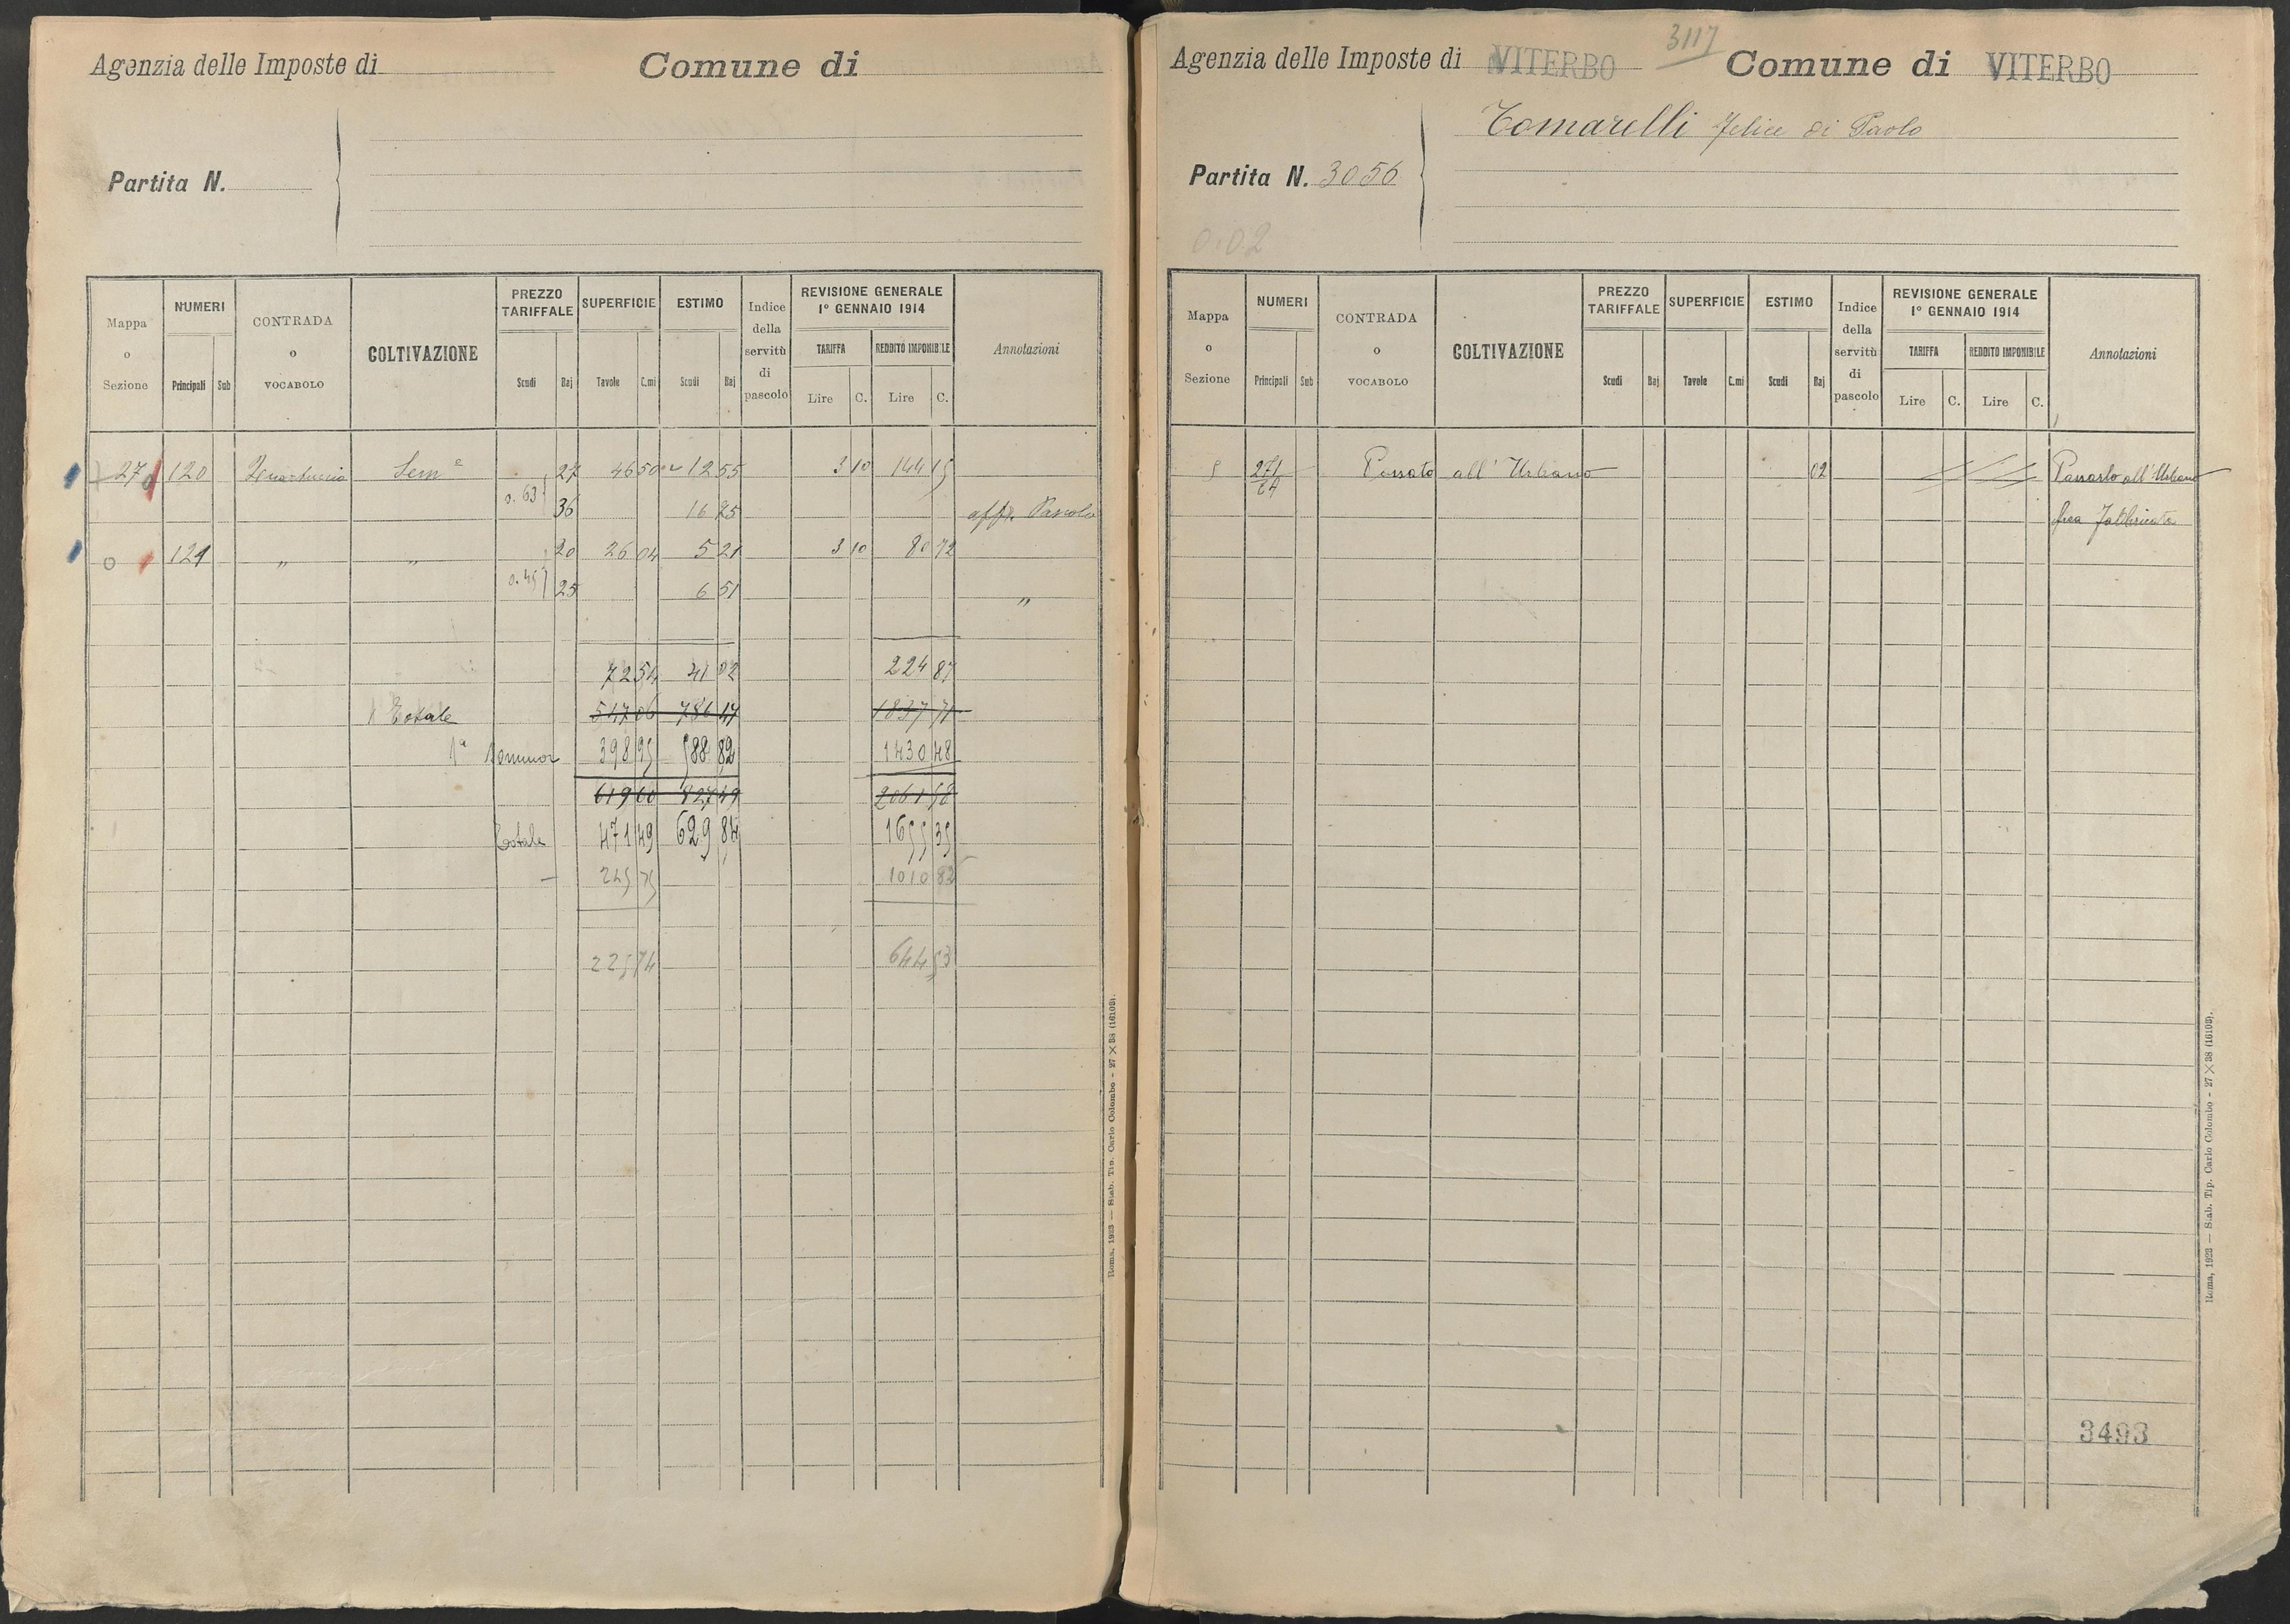 Agenzia delle Imposte di Comune di
Partita N.
Mappa o Sezione NUMERI Principali Sub CONTRADA o VOCABOLO COLTIVAZIONE PREZZO TARIFFALE Scudi Baj SUPERFICIE Tavole C.mi ESTIMO Scudi Baj Indice della servitù di pascolo REVISIONE GENERALE 1° GENNAIO 1914 TARIFFA Lire C. REDDITO IMPONIBILE Lire C. Annotazioni
27 120 Sem.e 27 46 50 12 55 3 10 144 15
0.63 36 16 25 aff. Pascolo
0 121 " " 20 26 04 5 21 3 10 80 72
0.45 25 6 51 "
72 54 41 02 224 87
Totale 547 06 786 47 1837 71
1a 398 95 588 82 1430 48
619 60 827 49 2061 58
Totale 471 49 629 84 1655 35
– 245 75 1010 82
225 74 644 53
Roma, 1923 — Stab. Tip. Carlo Colombo - 27 × 38 (16103).
3117
Agenzia delle Imposte di VITERBO Comune di VITERBO
Tomarelli Felice di Paolo
Partita N. 3056
0.02
Mappa o Sezione NUMERI Principali Sub CONTRADA o VOCABOLO COLTIVAZIONE PREZZO TARIFFALE Scudi Baj SUPERFICIE Tavole C.mi ESTIMO Scudi Baj Indice della servitù di pascolo REVISIONE GENERALE 1° GENNAIO 1914 TARIFFA Lire C. REDDITO IMPONIBILE Lire C. Annotazioni
271/64 Passato all'Urbano 02 Passato all'Urbano
Fabbricato
3493
Roma, 1923 — Stab. Tip. Carlo Colombo - 27 × 38 (16103).